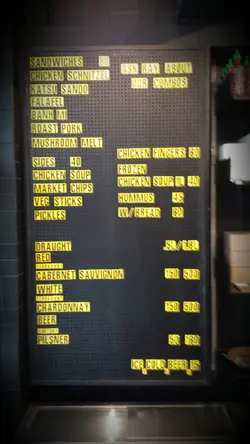 SANDWICHES
CHICKEN SCHNITZEL
KATSU SANDO
FALAFEL
BANH MI
ROAST PORK
MUSHROOM MELT
ASK BAY ABOUT
OUR COMBOS
SIDES 40
CHICKEN SOUP
MARKET CHIPS
VEG STICKS
PICKLES
CHICKEN FINGERS 60
FROZEN
CHICKEN SOUP 1L 40
HUMMUS 45
W/BREAD 60
DRAUGHT
RED
CABERNET SAUVIGNON 150 500
WHITE
CHARDONNAY 150 500
BEER
PILSNER 50 160
ICE COLD BEER